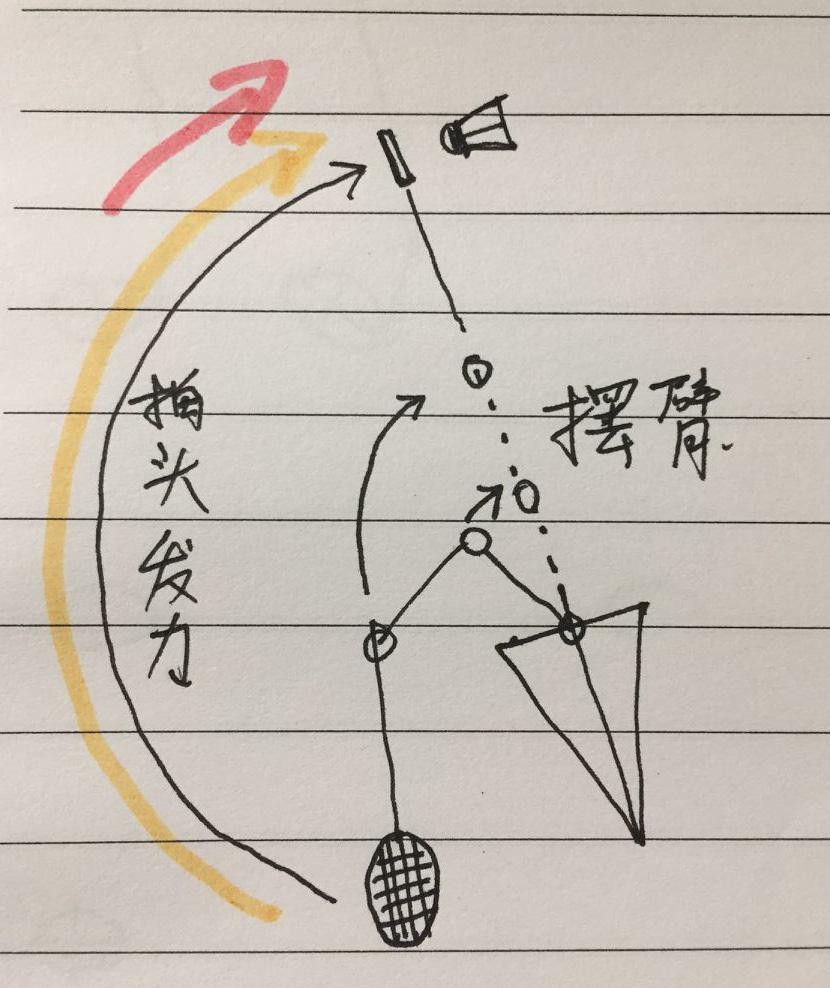 拍头发力
摆臂.